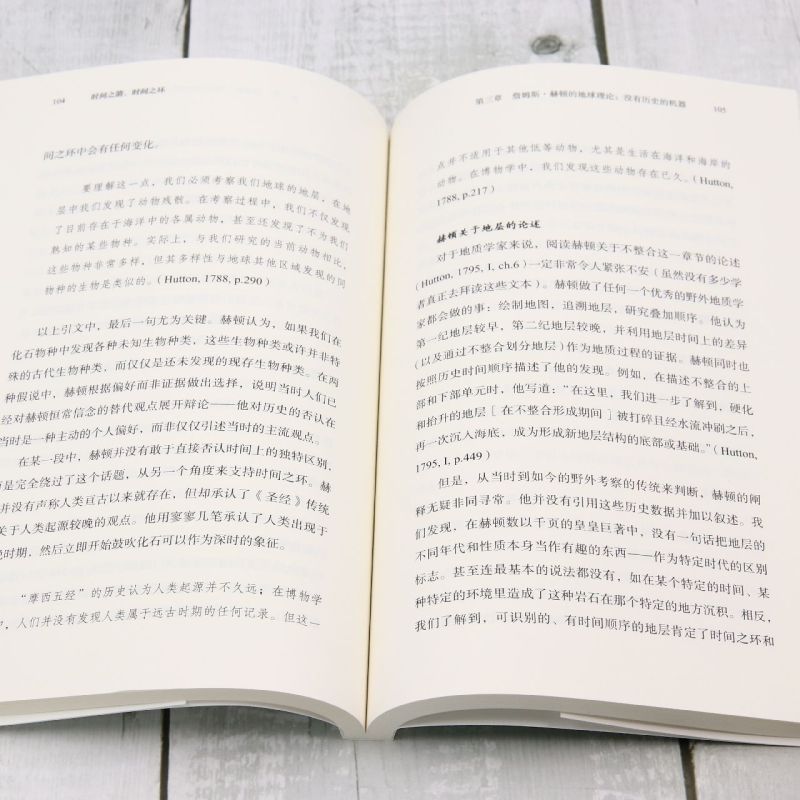 104 时间之箭,时间之环
间之环中会有任何变化。
要理解这一点,我们必须考察我们地球的地层,在地
层中我们发现了动物残骸。在考察过程中,我们不仅发现
了目前存在于海洋中的各属动物,甚至还发现了不为我们
熟知的某些物种。实际上,与我们研究的当前动物相比,
这些物种非常多样,但其多样性与地球其他区域发现的同
物种的生物是类似的。(Hutton, 1788, p.290)
以上引文中,最后一句尤为关键。赫顿认为,如果我们在
化石物种中发现各种未知生物种类,这些生物种类或许并非特
殊的古代生物种类,而仅仅是还未发现的现存生物种类。在两
种假说中,赫顿根据偏好而非证据做出选择,说明当时人们已
经对赫顿恒常信念的替代观点展开辩论——他对历史的否认在
当时是一种主动的个人偏好,而非仅仅引述当时的主流观点。
在某一段中,赫顿并没有敢于直接否认时间上的独特区别,
而是完全绕过了这个话题,从另一个角度来支持时间之环。赫
并没有声称人类亘古以来就存在,但却承认了《圣经》传统
关于人类起源较晚的观点。他用寥寥几笔承认了人类出现于
晚时期,然后立即开始鼓吹化石可以作为深时的象征。
“摩西五经”的历史认为人类起源并不久远;在博物学
中,人们并没有发现人类属于远古时期的任何记录。但这一
第三章 詹姆斯·赫顿的地球理论:没有历史的机器 105
点并不适用于其他低等动物,尤其是生活在海洋和海岸的
动物。在博物学中,我们发现这些动物存在已久。(Hutton,
1788, p.217)
赫顿关于地层的论述
对于地质学家来说,阅读赫顿关于不整合这一章节的论述
(Hutton, 1795, I, ch.6)一定非常令人紧张不安(虽然没有多少学
者直正去拜读这些文本)。赫顿做了任何一个优秀的野外地质学
家都会做的事:绘制地图,追溯地层,研究叠加顺序。他认为
第一纪地层较早,第二纪地层较晚,并利用地层时间上的差异
(以及通过不整合划分地层)作为地质过程的证据。赫顿同时也
按照历史时间顺序描述了他的发现。例如,在描述不整合的上
部和下部单元时,他写道:“在这里,我们进一步了解到,硬化
和抬升的地层[在不整合形成期间]被打碎且经水流冲刷之后,
再一次沉入海底,成为形成新地层结构的底部或基础。”(Hutton,
1795, I, p.449)
但是,从当时到如今的野外考察的传统来判断,赫顿的阐
释无疑非同寻常。他并没有引用这些历史数据并加以叙述。我
们发现,在赫顿数以千页的皇皇巨著中,没有一句话把地层的
不同年代和性质本身当作有趣的东西——作为特定时代的区别
标志。甚至连最基本的说法都没有,如在某个特定的时间、某
种特定的环境里造成了这种岩石在那个特定的地方沉积。相反,
我们了解到,可识别的、有时间顺序的地层肯定了时间之环和